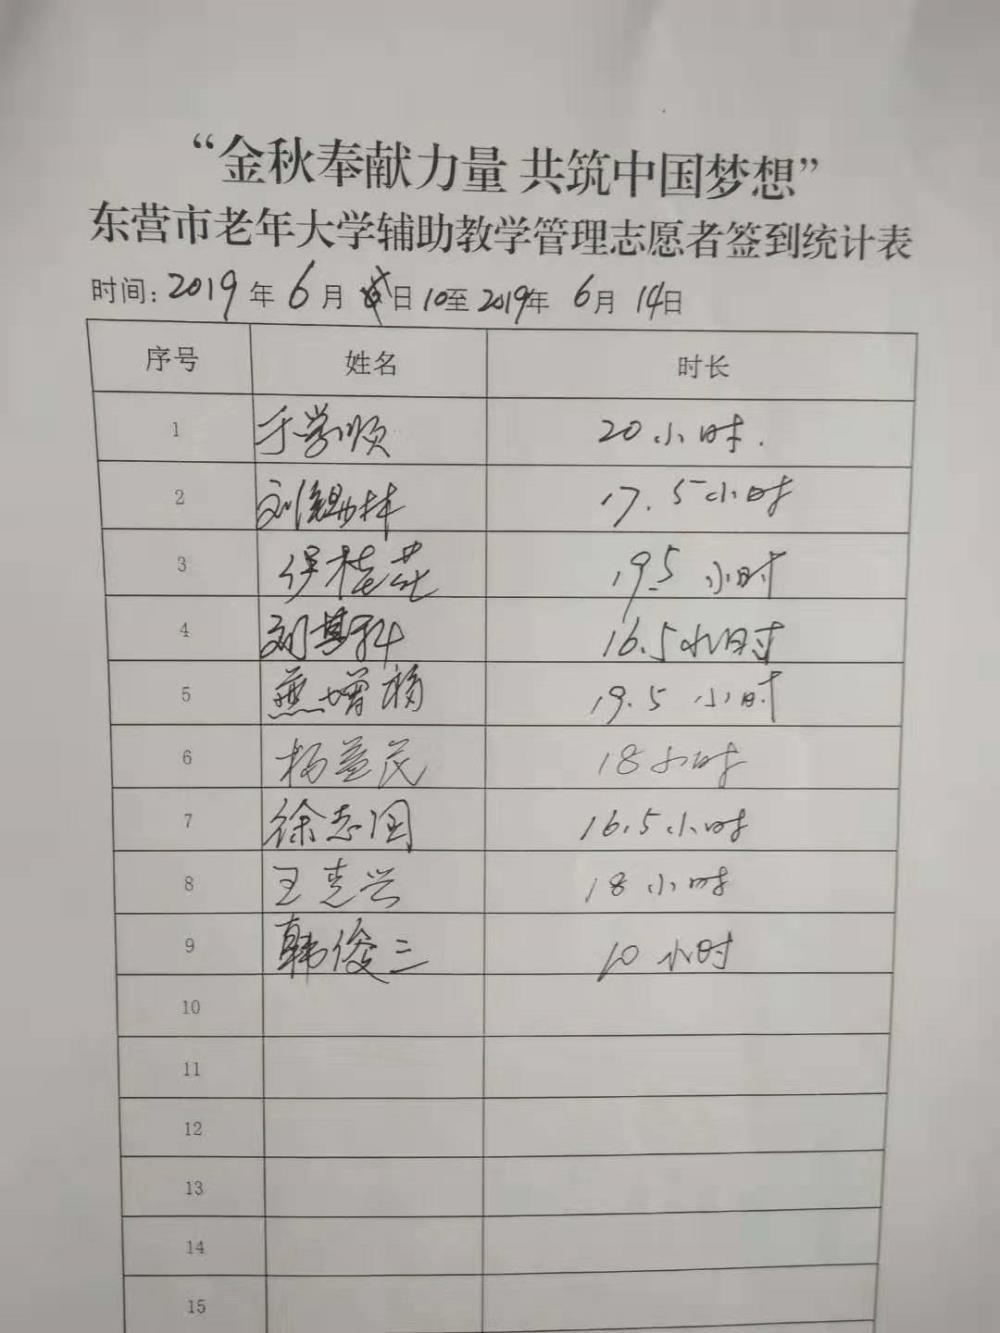 “金秋奉献力量 共筑中国梦想”
东营市老年大学辅助教学管理志愿者签到统计表
时间: 2019 年 6 月 日 10至 2019年 6 月 14日
序号 姓名 时长
1 于学顺 20小时.
2 刘锡林 17.5小时
3 伊桂芝 19.5小时
4 刘其科 16.5小时
5 燕增 19.5小时
6 杨益民 18小时
7 徐志国 16.5小时
8 王兴 18小时
9 韩俊三 10小时
10
11
12
13
14
15